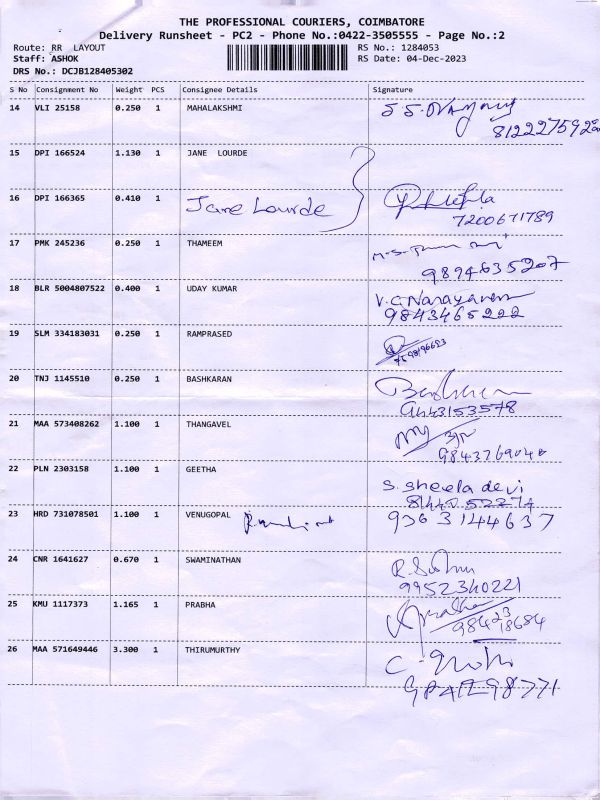 THE PROFESSIONAL COURIERS, COIMBATORE
Delivery Runsheet - PC2 - Phone No.:0422-3505555 - Page No.:2
Route: RR LAYOUT RS No.: 1284053
Staff: ASHOK RS Date: 04-Dec-2023
DRS No.: DCJB128405302
S No Consignment No Weight PCS Consignee Details Signature
14 VLI 25158 0.250 1 MAHALAKSHMI
15 DPI 166524 1.130 1 JANE LOURDE
16 DPI 166365 0.410 1 Jane Lourde
7200671789
17 PMK 245236 0.250 1 THAMEEM
9894635207
18 BLR 5004807522 0.400 1 UDAY KUMAR V.C. Narayanan
9843465222
19 SLM 334183031 0.250 1 RAMPRASED
20 TNJ 1145510 0.250 1 BASHKARAN
9443153578
21 MAA 573408262 1.100 1 THANGAVEL
22 PLN 2303158 1.100 1 GEETHA S. Sheela devi
23 HRD 731078501 1.100 1 VENUGOPAL 9363144637
24 CNR 1641627 0.670 1 SWAMINATHAN
9952340221
25 KMU 1117373 1.165 1 PRABHA Prabha
98423 18684
26 MAA 571649446 3.300 1 THIRUMURTHY